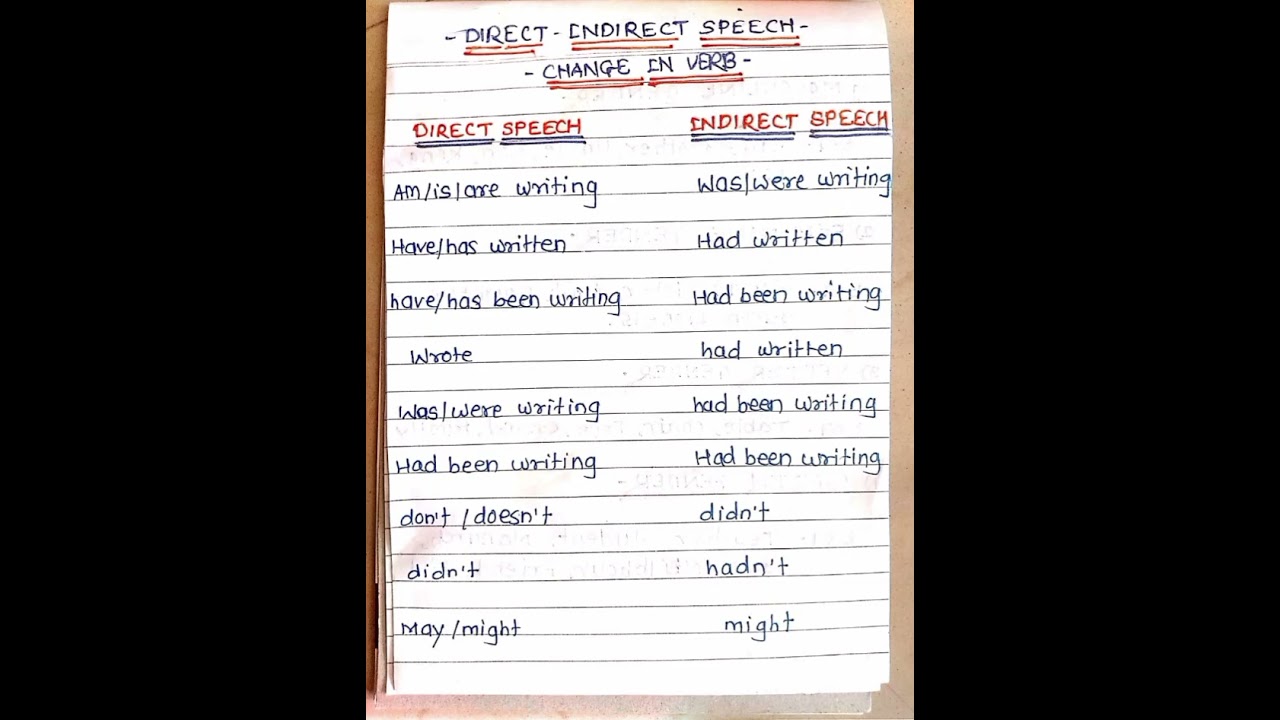 - DIRECT - INDIRECT SPEECH -
- CHANGE IN VERB -
DIRECT SPEECH INDIRECT SPEECH
Am/is/are writing Was/were writing
Have/has written Had written
have/has been writing Had been writing
Wrote had written
Was/were writing had been writing
Had been writing Had been writing
don't / doesn't didn't
didn't hadn't
May /might might